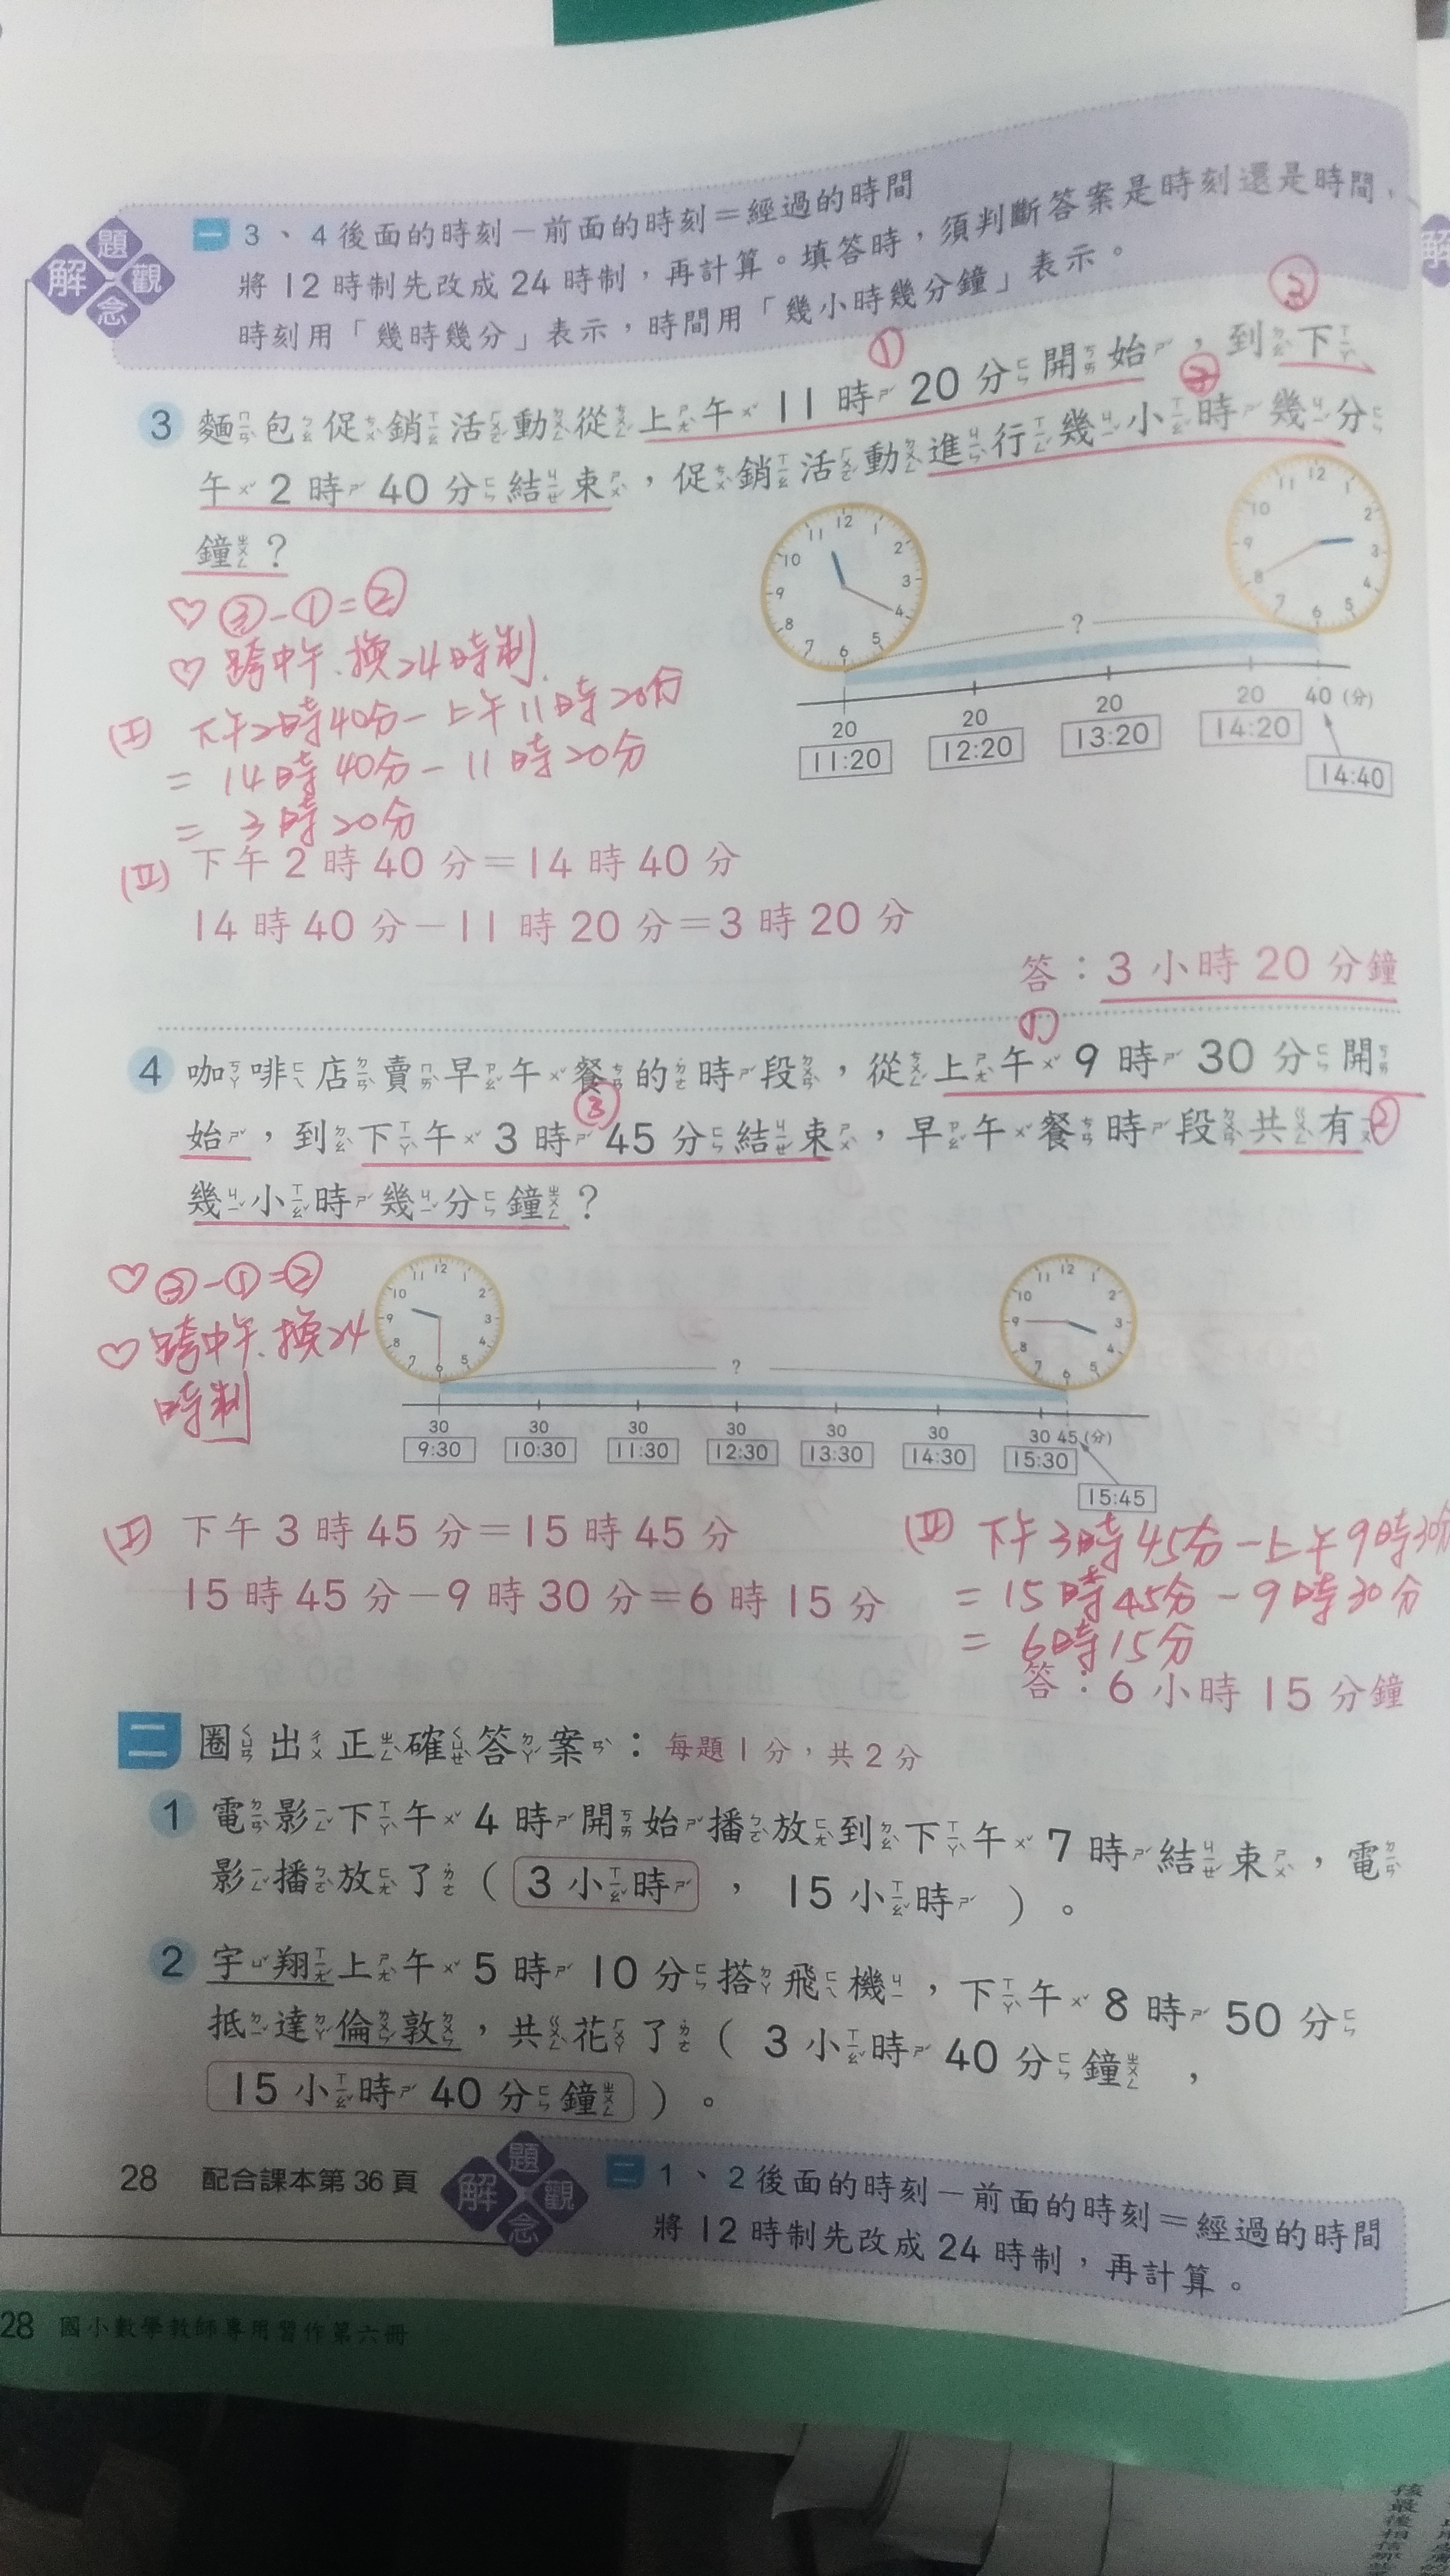 解題觀念
一 3、4後面的時刻－前面的時刻＝經過的時間
將12時制先改成24時制，再計算。填答時，須判斷答案是時刻還是時間，
時刻用「幾時幾分」表示，時間用「幾小時幾分鐘」表示。
① ② ③
3 麵包促銷活動從上午11時20分開始，到下
午2時40分結束，促銷活動進行幾小時幾分
鐘？
♡ ③-①=②
♡ 跨中午.換24時制.
(I) 下午2時40分-上午11時20分
= 14時40分-11時20分
= 3時20分
12 1 2 3 4 5 6 7 8 9 10 11
12 1 2 3 4 5 6 7 8 9 10 11
?
20 20 20 20 40 (分)
11:20 12:20 13:20 14:20
14:40
(II) 下午2時40分＝14時40分
14時40分－11時20分＝3時20分
答：3小時20分鐘
①
4 咖啡店賣早午餐的時段，從上午9時30分開
③
始，到下午3時45分結束，早午餐時段共有②
幾小時幾分鐘？
♡ ③-①=②
♡ 跨中午.換24
時制
12 1 2 3 4 5 6 7 8 9 10 11
12 1 2 3 4 5 6 7 8 9 10 11
?
30 30 30 30 30 30 30 45 (分)
9:30 10:30 11:30 12:30 13:30 14:30 15:30
15:45
(I) 下午3時45分＝15時45分
15時45分－9時30分＝6時15分
(II) 下午3時45分-上午9時30分
= 15時45分-9時30分
= 6時15分
答：6小時15分鐘
二 圈出正確答案：每題1分，共2分
1 電影下午4時開始播放到下午7時結束，電
影播放了（3小時，15小時）。
2 宇翔上午5時10分搭飛機，下午8時50分
抵達倫敦，共花了（3小時40分鐘，
15小時40分鐘）。
28 配合課本第36頁
解題觀念
二 1、2後面的時刻－前面的時刻＝經過的時間
將12時制先改成24時制，再計算。
28 國小數學教師專用習作第六冊